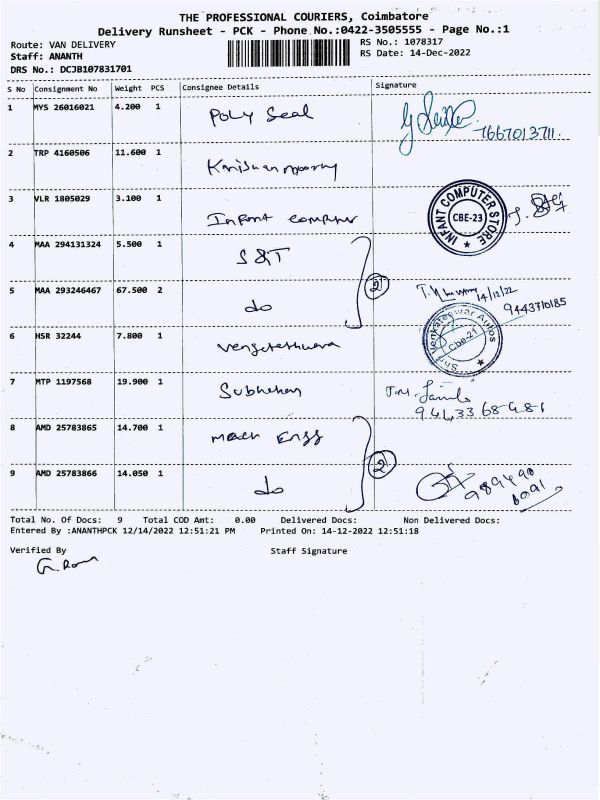 THE PROFESSIONAL COURIERS, Coimbatore
Delivery Runsheet - PCK - Phone No.:0422-3505555 - Page No.:1
Route: VAN DELIVERY RS No.: 1078317
Staff: ANANTH RS Date: 14-Dec-2022
DRS No.: DCJB107831701
S No Consignment No Weight PCS Consignee Details Signature
1 MYS 26016021 4.200 1 Poly Seal 7667013711.
2 TRP 4160506 11.600 1
3 VLR 1805029 3.100 1 Infant computer INFANT COMPUTER STORE CBE-23
4 MAA 294131324 5.500 1 S&T
5 MAA 293246467 67.500 2 do 2 14/12/22 9443710185
6 HSR 32244 7.800 1 Cbe-21
7 MTP 1197568 19.900 1
8 AMD 25783865 14.700 1 mach Engg
9 AMD 25783866 14.050 1 do 2
Total No. Of Docs: 9 Total COD Amt: 0.00 Delivered Docs: Non Delivered Docs:
Entered By :ANANTHPCK 12/14/2022 12:51:21 PM Printed On: 14-12-2022 12:51:18
Verified By Staff Signature